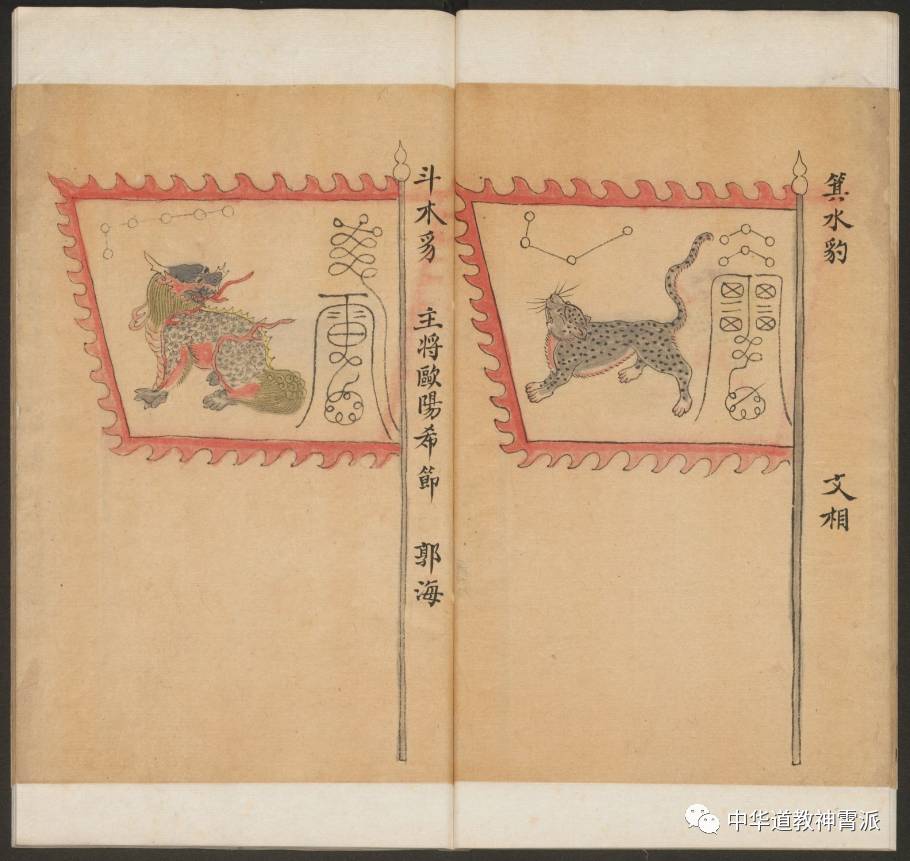 箕水豹
文相
斗木豸
主將歐陽希節
郭海
中华道教神霄派